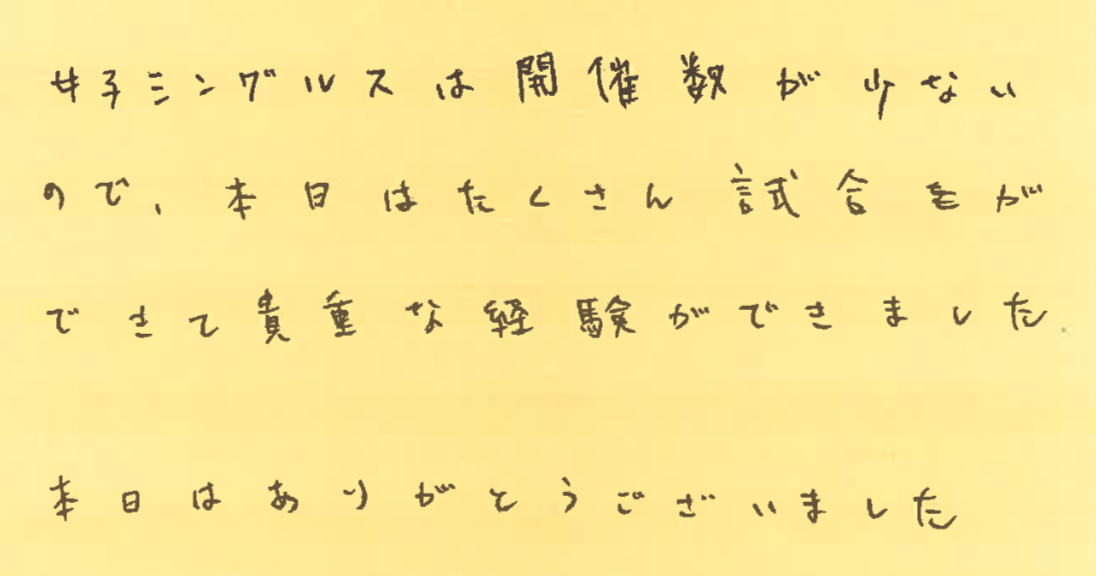 女子シングルスは開催数が少ない
ので、本日はたくさん試合をが
できて貴重な経験ができました。
本日はありがとうございました